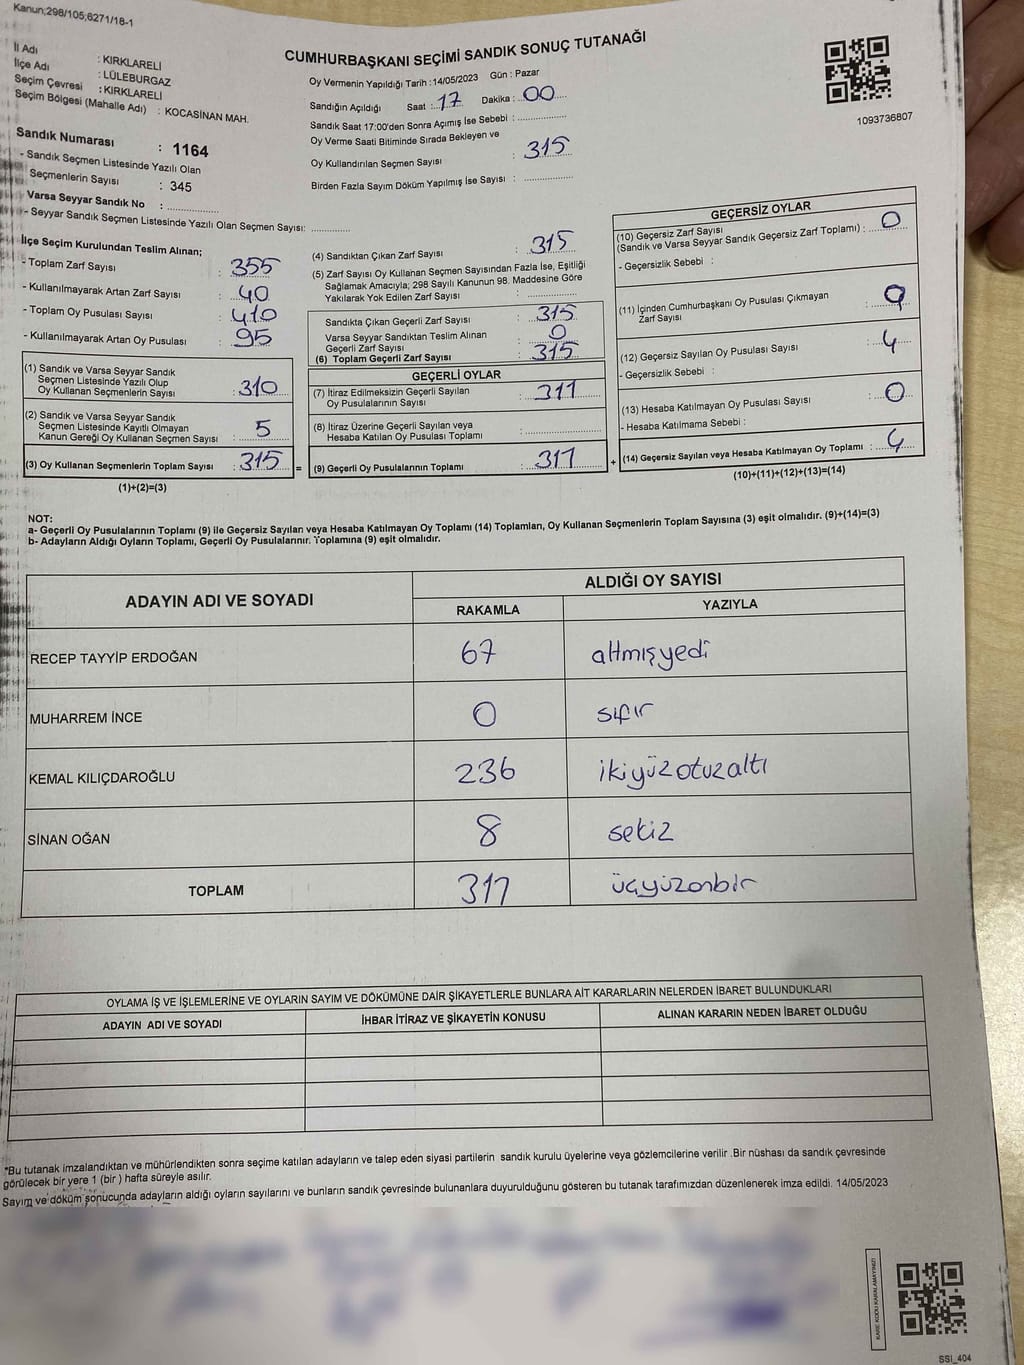 Kanun;298/105,6271/18-1
CUMHURBAŞKANI SEÇİMİ SANDIK SONUÇ TUTANAĞI
İl Adı : KIRKLARELİ
İlçe Adı : LÜLEBURGAZ
Seçim Çevresi : KIRKLARELİ
Seçim Bölgesi (Mahalle Adı) : KOCASİNAN MAH.
Sandık Numarası : 1164
- Sandık Seçmen Listesinde Yazılı Olan
Seçmenlerin Sayısı : 345
Varsa Seyyar Sandık No :
- Seyyar Sandık Seçmen Listesinde Yazılı Olan Seçmen Sayısı:
Oy Vermenin Yapıldığı Tarih :14/05/2023 Gün : Pazar
Sandığın Açıldığı Saat : 17 Dakika : 00
Sandık Saat 17:00'den Sonra Açımış İse Sebebi :
Oy Verme Saati Bitiminde Sırada Bekleyen ve
Oy Kullandırılan Seçmen Sayısı : 315
Birden Fazla Sayım Döküm Yapılmış İse Sayısı :
1093736807
İlçe Seçim Kurulundan Teslim Alınan;
- Toplam Zarf Sayısı : 355
- Kullanılmayarak Artan Zarf Sayısı : 40
- Toplam Oy Pusulası Sayısı : 410
- Kullanılmayarak Artan Oy Pusulası : 95
(1) Sandık ve Varsa Seyyar Sandık
Seçmen Listesinde Yazılı Olup
Oy Kullanan Seçmenlerin Sayısı : 310
(2) Sandık ve Varsa Seyyar Sandık
Seçmen Listesinde Kayıtlı Olmayan
Kanun Gereği Oy Kullanan Seçmen Sayısı : 5
(3) Oy Kullanan Seçmenlerin Toplam Sayısı : 315 =
(1)+(2)=(3)
(4) Sandıktan Çıkan Zarf Sayısı : 315
(5) Zarf Sayısı Oy Kullanan Seçmen Sayısından Fazla İse, Eşitliği
Sağlamak Amacıyla; 298 Sayılı Kanunun 98. Maddesine Göre
Yakılarak Yok Edilen Zarf Sayısı :
Sandıkta Çıkan Geçerli Zarf Sayısı : 315
Varsa Seyyar Sandıktan Teslim Alınan
Geçerli Zarf Sayısı : 0
(6) Toplam Geçerli Zarf Sayısı : 315
GEÇERLİ OYLAR
(7) İtiraz Edilmeksizin Geçerli Sayılan
Oy Pusulalarının Sayısı : 311
(8) İtiraz Üzerine Geçerli Sayılan veya
Hesaba Katılan Oy Pusulası Toplamı :
(9) Geçerli Oy Pusulalarının Toplamı : 311 +
GEÇERSİZ OYLAR
(10) Geçersiz Zarf Sayısı
(Sandık ve Varsa Seyyar Sandık Geçersiz Zarf Toplamı) : 0
- Geçersizlik Sebebi :
(11) İçinden Cumhurbaşkanı Oy Pusulası Çıkmayan
Zarf Sayısı : 0
(12) Geçersiz Sayılan Oy Pusulası Sayısı : 4
- Geçersizlik Sebebi :
(13) Hesaba Katılmayan Oy Pusulası Sayısı : 0
- Hesaba Katılmama Sebebi :
(14) Geçersiz Sayılan veya Hesaba Katılmayan Oy Toplamı : 4
(10)+(11)+(12)+(13)=(14)
NOT:
a- Geçerli Oy Pusulalarının Toplamı (9) ile Geçersiz Sayılan veya Hesaba Katılmayan Oy Toplamı (14) Toplamları, Oy Kullanan Seçmenlerin Toplam Sayısına (3) eşit olmalıdır. (9)+(14)=(3)
b- Adayların Aldığı Oyların Toplamı, Geçerli Oy Pusulalarının Toplamına (9) eşit olmalıdır.
ADAYIN ADI VE SOYADI ALDIĞI OY SAYISI
RAKAMLA YAZIYLA
RECEP TAYYİP ERDOĞAN 67 altmışyedi
MUHARREM İNCE 0 sıfır
KEMAL KILIÇDAROĞLU 236 ikiyüzotuzaltı
SİNAN OĞAN 8 sekiz
TOPLAM 311 üçyüzonbir
OYLAMA İŞ VE İŞLEMLERİNE VE OYLARIN SAYIM VE DÖKÜMÜNE DAİR ŞİKAYETLERLE BUNLARA AİT KARARLARIN NELERDEN İBARET BULUNDUKLARI
ADAYIN ADI VE SOYADI İHBAR İTİRAZ VE ŞİKAYETİN KONUSU ALINAN KARARIN NEDEN İBARET OLDUĞU
*Bu tutanak imzalandıktan ve mühürlendikten sonra seçime katılan adayların ve talep eden siyasi partilerin sandık kurulu üyelerine veya gözlemcilerine verilir .Bir nüshası da sandık çevresinde
görülecek bir yere 1 (bir ) hafta süreyle asılır.
Sayım ve döküm sonucunda adayların aldığı oyların sayılarını ve bunların sandık çevresinde bulunanlara duyurulduğunu gösteren bu tutanak tarafımızdan düzenlenerek imza edildi. 14/05/2023
KARE KODU KARALAMAYINIZ!
SSI_404